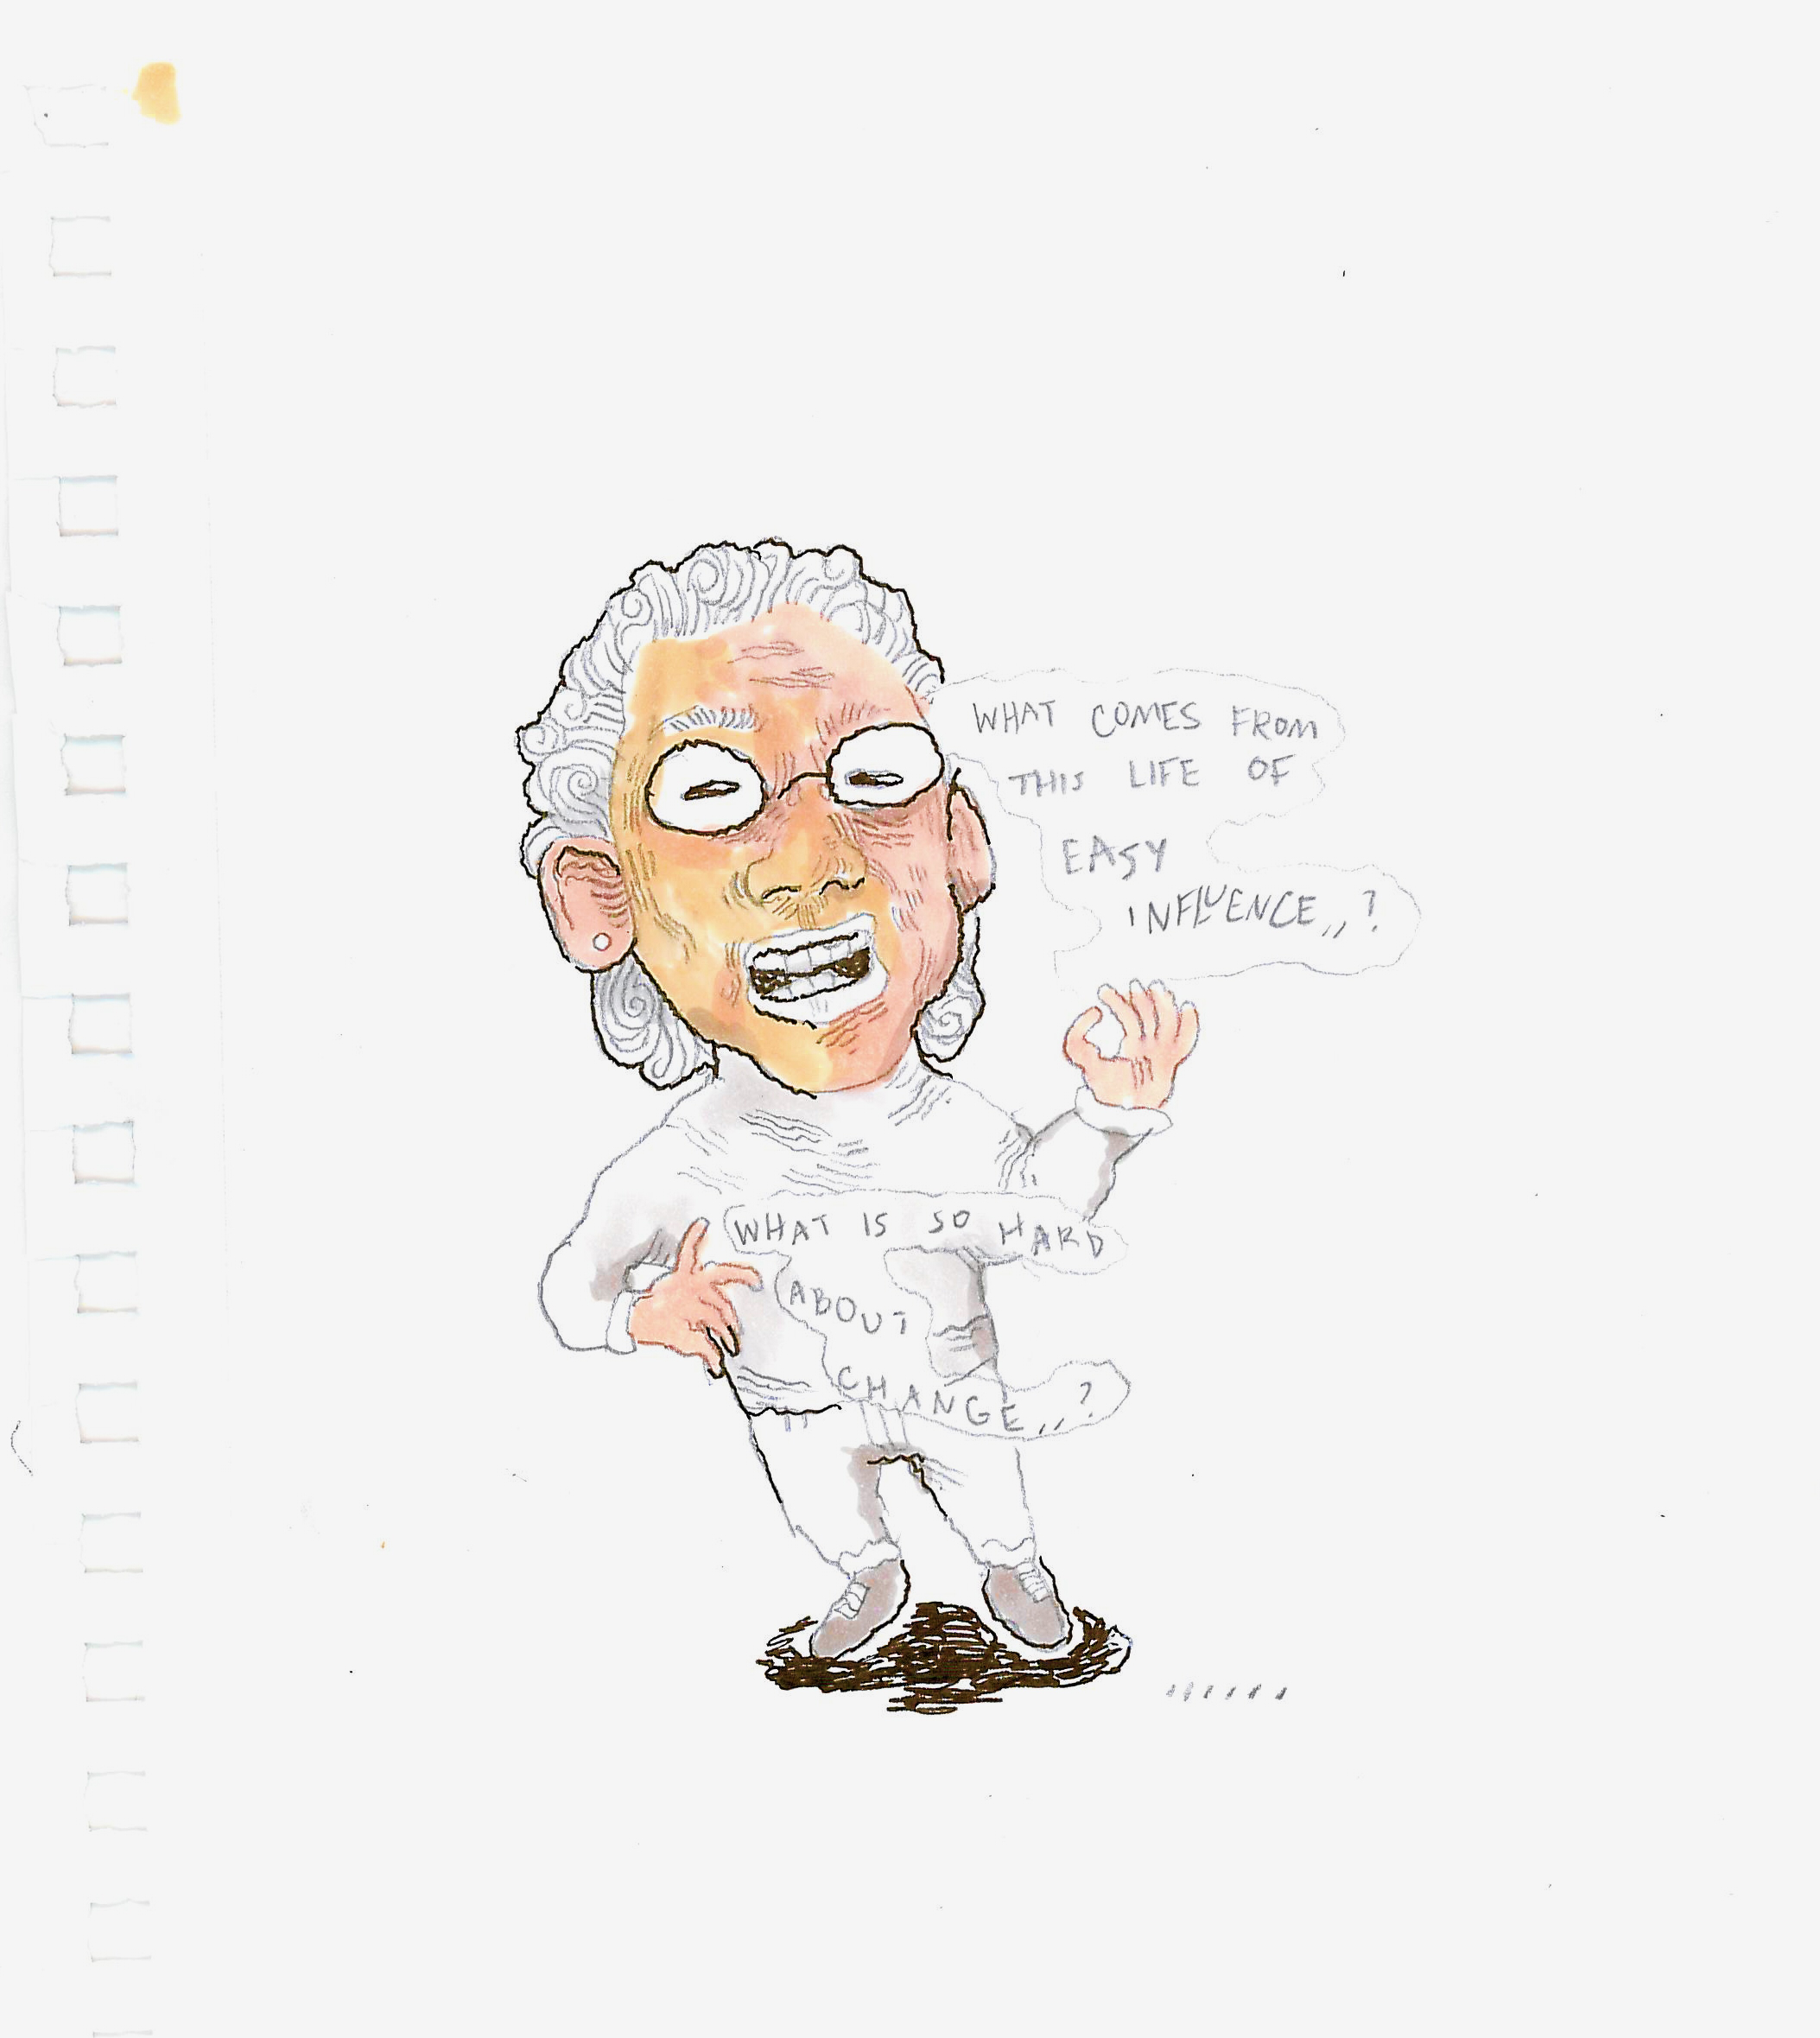 WHAT COMES FROM
THIS LIFE OF
EASY
INFLUENCE,,?
WHAT IS SO HARD
ABOUT
CHANGE,,?